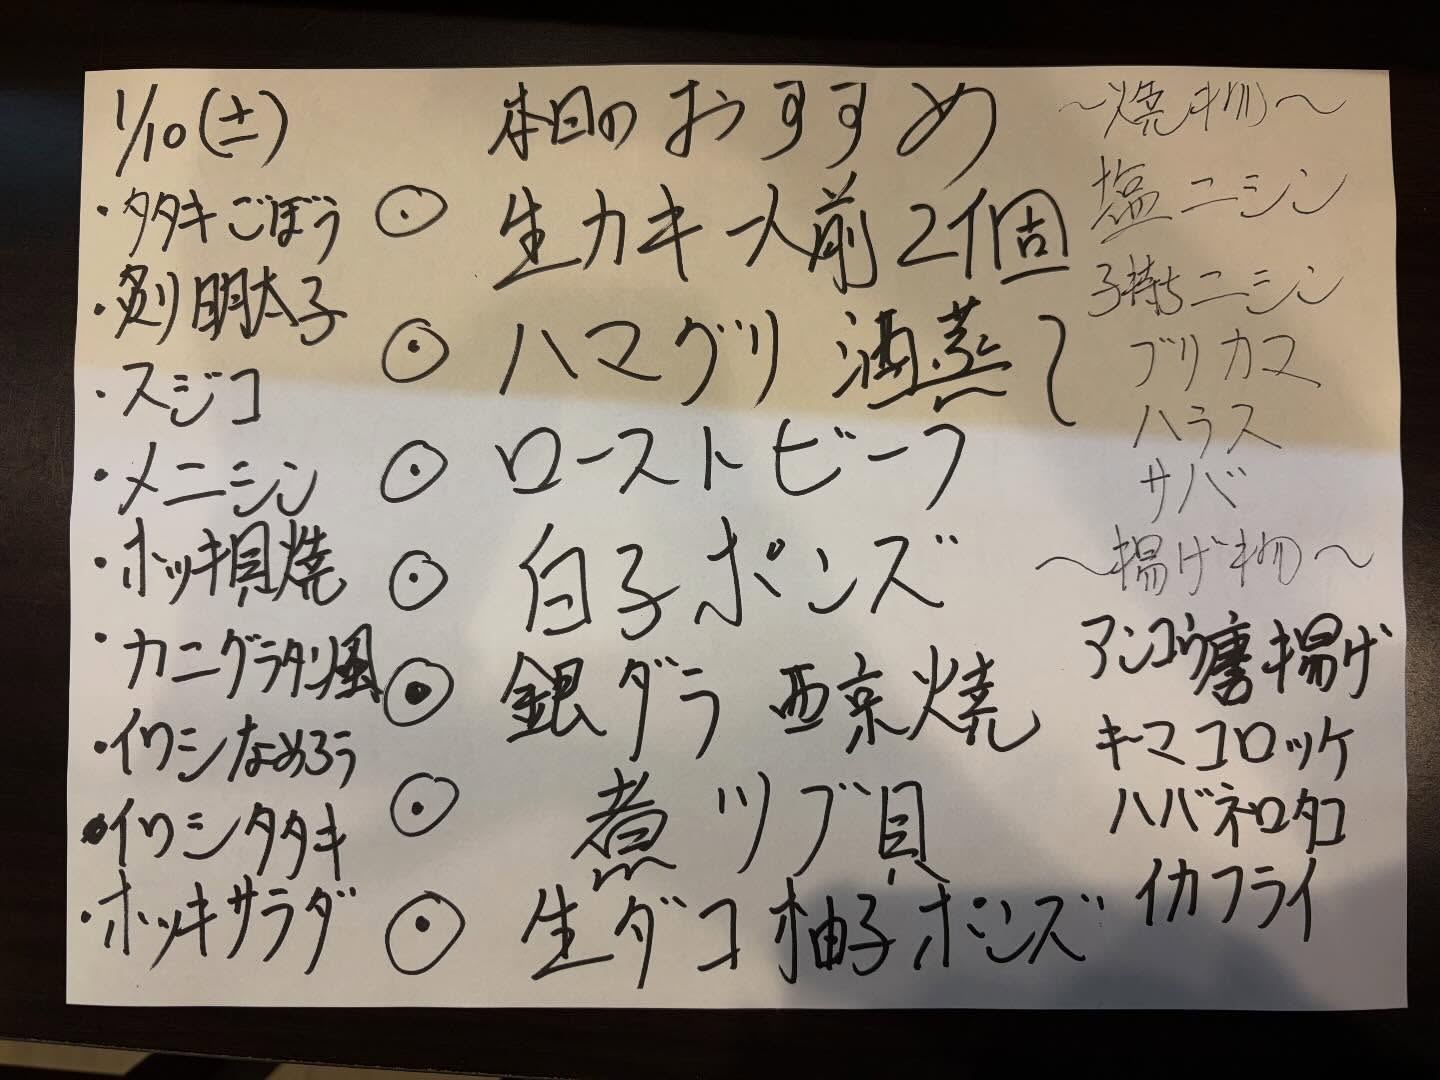 1/10(土)
・タタキごぼう
・炙り明太子
・スジコ
・メニシン
・ホッキ貝焼
・カニグラタン風
・イワシなめろう
・イワシタタキ
・ホッキサラダ
本日のおすすめ
◉ 生カキ一人前2個
◉ ハマグリ 酒蒸し
◉ ローストビーフ
◉ 白子ポンズ
◉ 銀ダラ 西京焼
◉ 煮ツブ貝
◉ 生ダコ柚子ポンズ
〜焼き物〜
塩ニシン
子持ちニシン
ブリカマ
ハラス
サバ
〜揚げ物〜
アンコウ唐揚げ
キーマコロッケ
ハバネロタコ
イカフライ